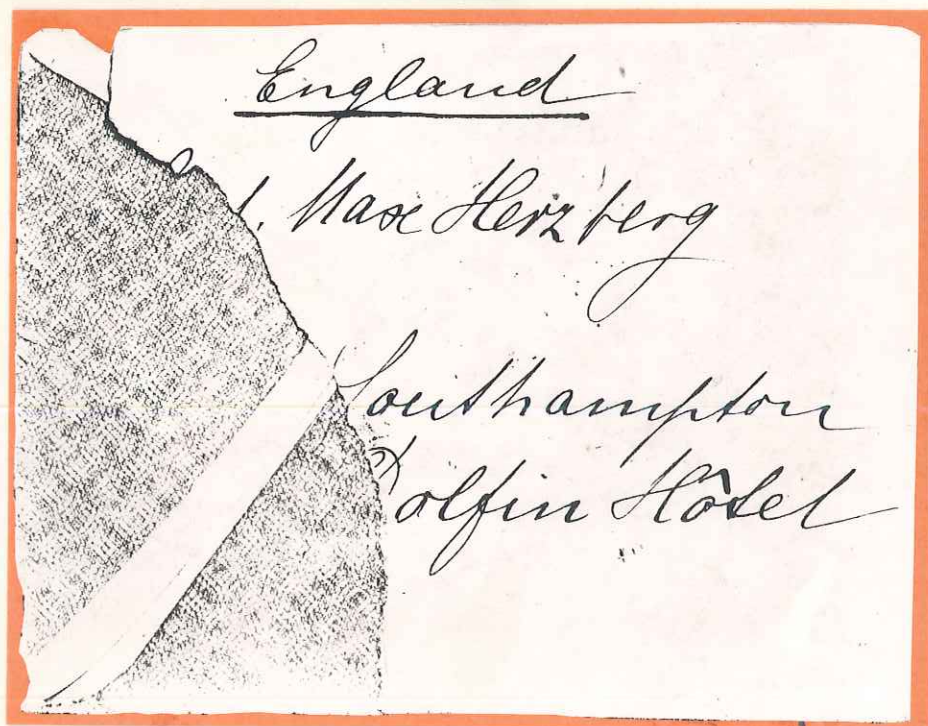 England
. Max Herzberg
Southampton
Dolfin Hôtel